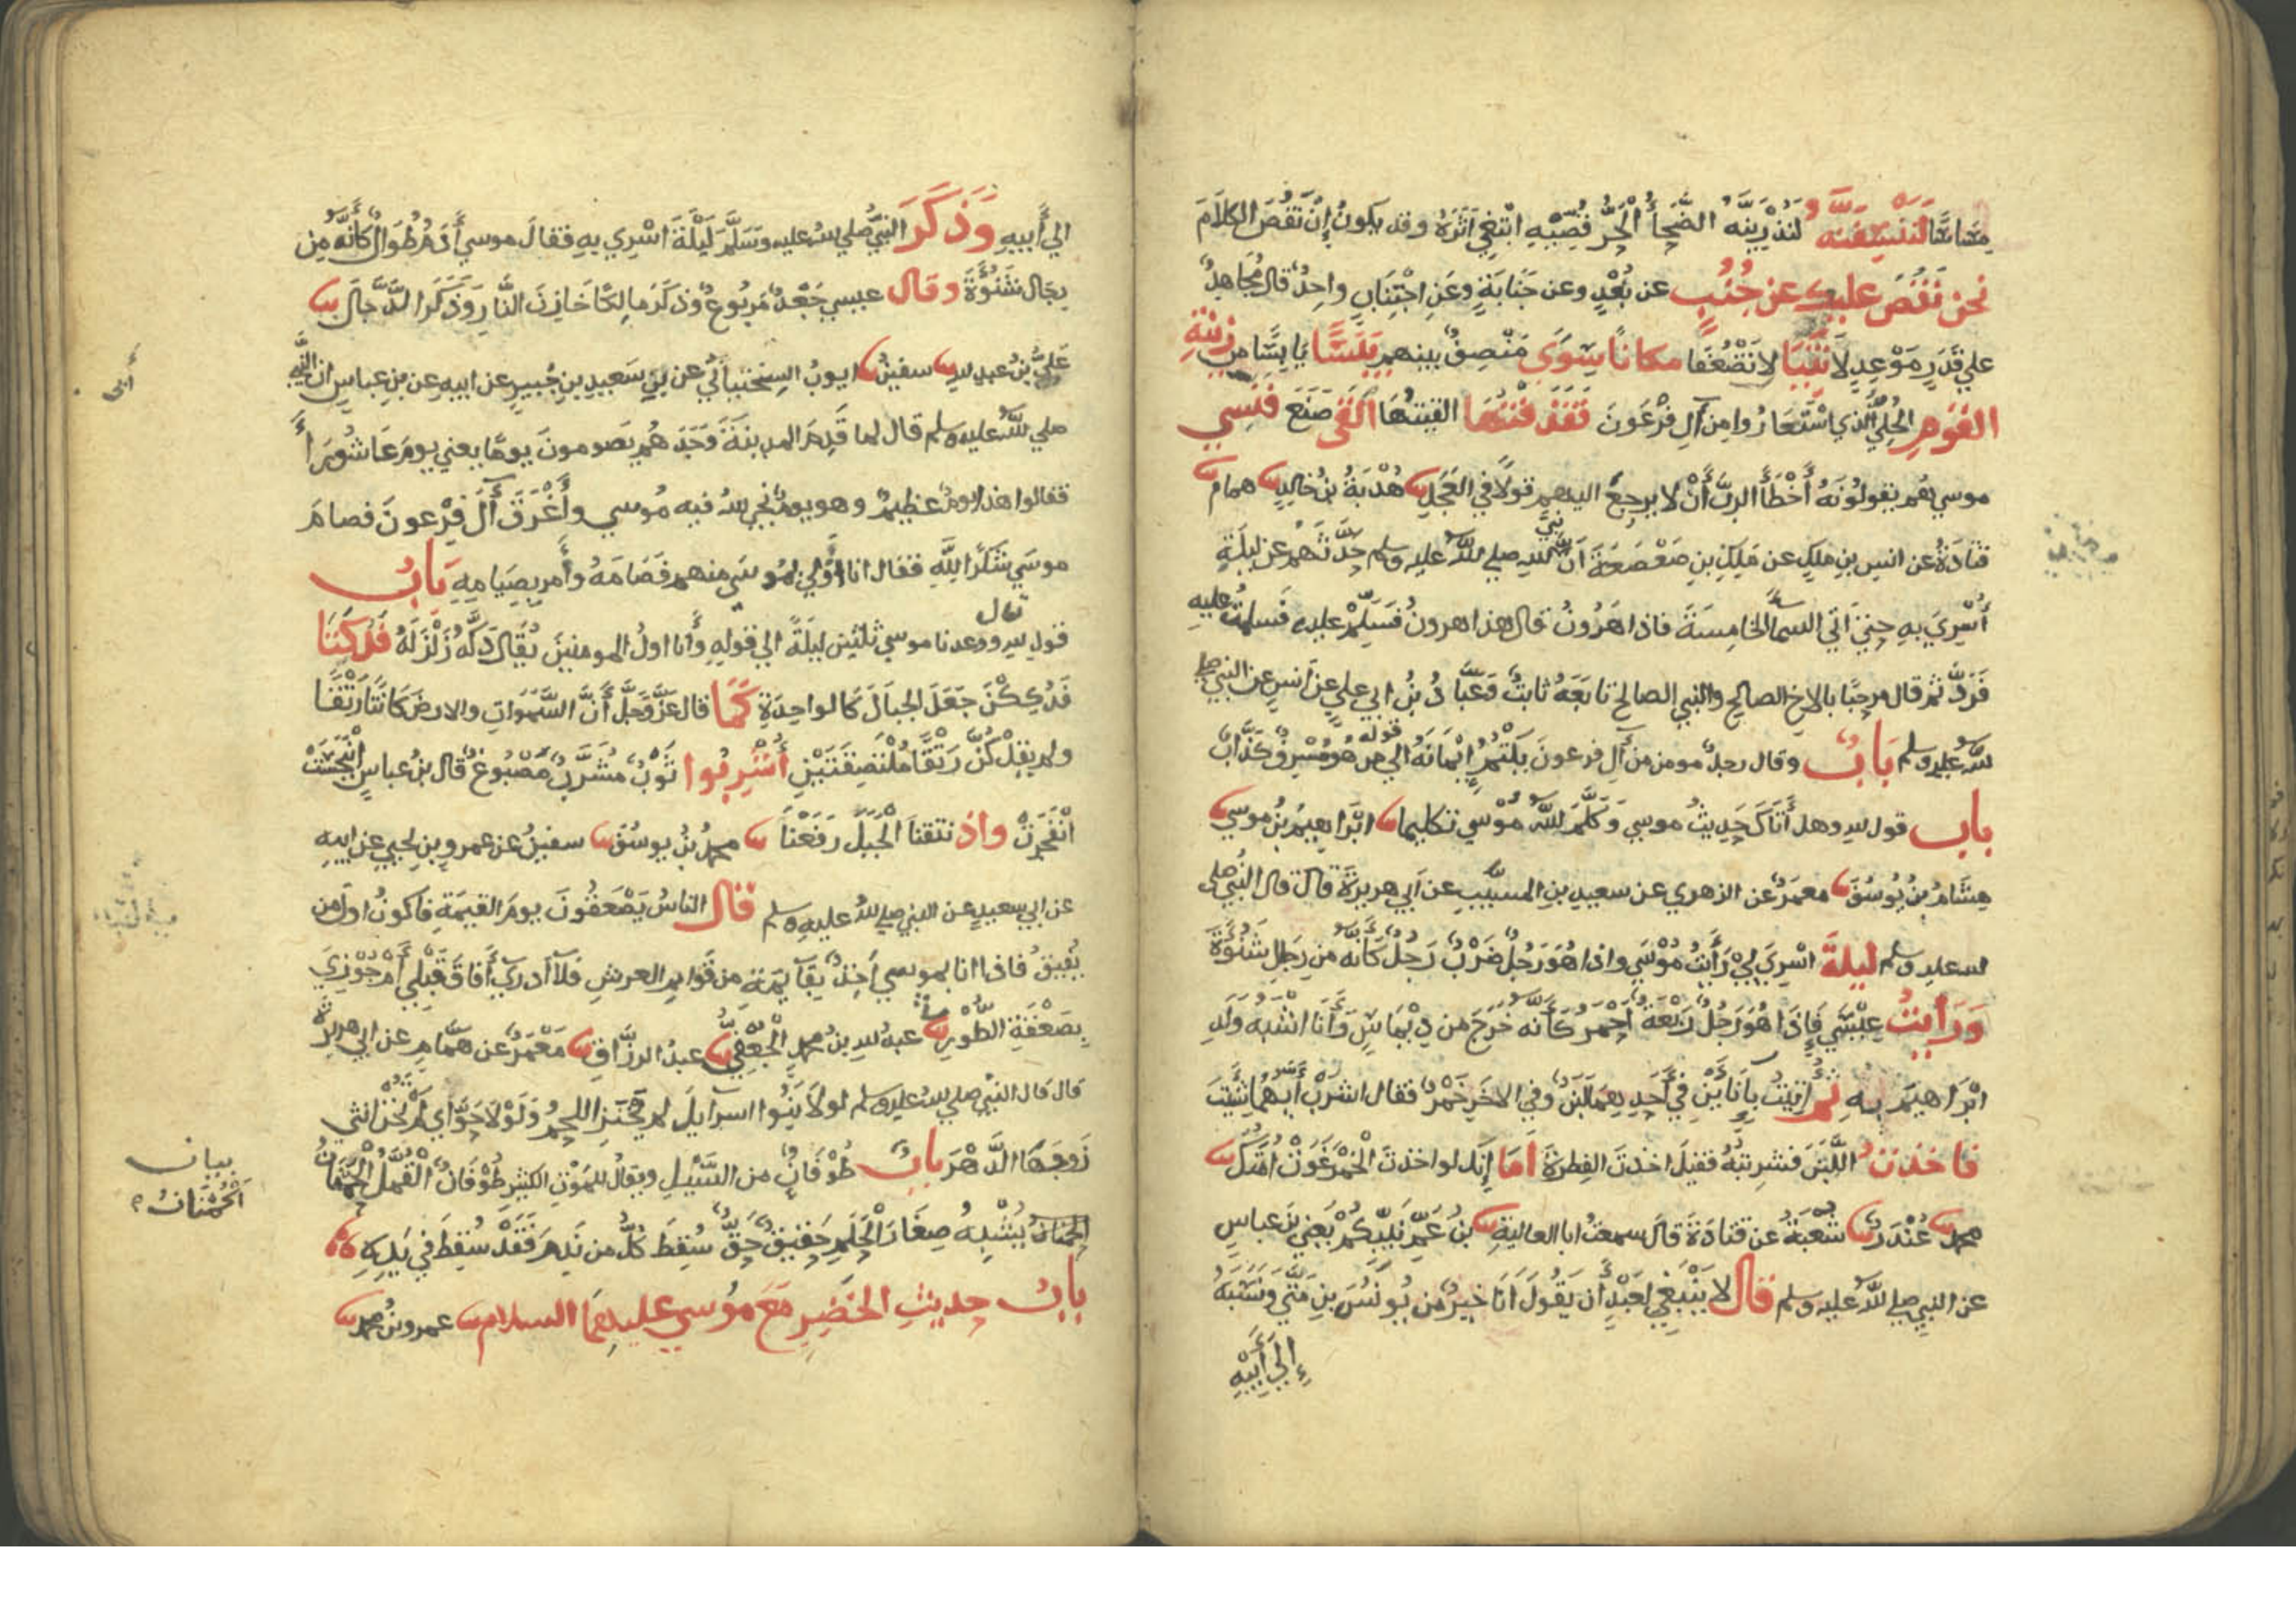 مِسَاسًا لَنَنْسِفَنَّهُ لَنُذْرِيَنَّهُ الضَّحَاءُ الْحَرُّ قُصِّيهِ اتْبَعِي أَثَرَهُ وقد يكونُ إنْ تَقُصَّ الكلامَ
نحن نَقُصُّ عليك عن جُنُبٍ عن بُعْدٍ وعن جَنَابَةٍ وعَنِ اجْتِنَابٍ واحِدٌ قال مُجَاهِدٌ
على قَدَرٍ مَوْعِدٍ لاَ تَنِيَا لا تَضْعُفَا مكانًا سِوًى مَنْصِفٌ بينهم يَبَسًا يَابِسًا من زِينَةِ
القَوْمِ الحُلِيِّ الَّذِي اسْتَعَارُوا مِن آلِ فِرْعَونَ فَقَذَفْتُهَا القيتُهَا أَلْقَى صَنَعَ فَنَسِيَ
موسى هُم يقولُونَهُ أَخْطَأَ الربَّ أَنْ لا يرجِعُ اليهم قولاً في العِجْلِ هُدْبَةُ بنُ خالِدٍ همام
قتادَةُ عن انسِ بنِ ملكٍ عن مَلِكِ بنِ صَعْصَعَةَ أَنَّ نبيَّ اللهِ صلى الله عليه وسلم حَدَّثَهُم عن ليلَةِ
أُسْرِيَ به حتى أتى السماءَ الخامِسَةَ فاذا هَرُونُ قال هذا هرونُ فَسَلِّمْ عليه فسلمتُ عليه
فَرَدَّ ثم قال مرحبًا بالاخِ الصالحِ والنبي الصالح تابَعَهُ ثابتٌ وَعَبَّادُ بنُ ابي علي عن أنسٍ عن النبي صلى
الله عليه وسلم بَابٌ وقال رجلٌ مومن من آلِ فرعونَ يَكْتُمُ إِيمَانَهُ الى قوله من هُوَ مُسْرِفٌ كَذَّابٌ
باب قول الله وهل أَتَاكَ حَدِيثُ موسى وَكَلَّمَ اللهُ مُوْسى تكليما ابْرَاهِيمُ بنُ موسى
هِشَامُ بنُ يُوسُفَ معمَرٌ عن الزهري عن سعيدِ بنِ المسيَّبِ عن أبي هريرةَ قال قال النبيُّ صلى
الله عليه وسلم ليلةَ اسْرِيَ بِي رَأَيتُ مُوْسَى واذا هُوَ رَجُلٌ ضَرْبٌ رَجُلٌ كَأَنَّهُ من رِجَالِ شَنُوْءَةَ
وَرَأيتُ عِيْسَى فَإِذَا هُوَ رَجُلٌ رَبْعَةٌ أَحْمَرُ كَأَنَّهُ خَرَجَ من دِيْمَاسٍ وَأَنَا اشْبَهُ وَلَدِ
ابْرَاهيمَ به ثم أُتِيتُ بِإِنَاءَيْنِ في أَحَدِهِمَا لَبَنٌ وفي الاخَرِ خَمْرٌ فقال اشرَبْ أَيَّهُمَا شِئْتَ
فاخذتُ اللَّبَنَ فشرِبتُهُ فقيلَ اخذتَ الفِطرةَ أَمَا إِنَّك لو اخذتَ الْخَمْرَ غَوَتْ أُمَّتُكَ
محمد غُنْدَرٌ شُعْبَةُ عن قتادَةَ قال سمعتُ ابا العاليةِ بنُ عَمِّ نَبِيِّكُمْ يَعْنِي بنَ عباسٍ
عن النبي صلى الله عليه وسلم قال لا يَنْبَغِي لِعَبْدٍ أن يَقُولَ أَنَا خيرٌ من يُونُسَ بنِ مَتَّى وَنَسَبَهُ
إِلى أَبِيْهِ
الى أَبِيهِ وَذَكَرَ النبيُّ صلى الله عليه وسَلَّمَ لَيْلَةَ اسْرِي بِهِ فقالَ موسى أَدَمُ طُوَالٌ كَأَنَّهُ مِن
رِجَالِ شَنُوْءَةَ وقال عيسى جَعْدٌ مَرْبُوعٌ وذكَرَ مالِكًا خَازِنَ النَّارِ وَذَكَرَ الدَّجَّالَ
عَلِيُّ بنُ عبدِ اللهِ سفينُ ايوبُ السِختياني عن بنِ سَعِيدِ بنِ جُبيرٍ عن ابيهِ عن بنِ عباسٍ ان النبي
صلى الله عليه وسلم قال لما قَدِمَ المدينَةَ وَجَدَهُم يَصومونَ يومًا يعني يومَ عَاشُورَاءَ
فقالوا هذا يومٌ عظيمٌ وهو يومٌ نجى اللهُ فيه مُوسى وأَغْرَقَ آلَ فِرْعونَ فصامَ
موسَى شُكْرًا لِلَّهِ فقال انا أَوْلَى بموسَى منهم فَصَامَهُ وأَمر بِصِيَامِهِ بَابُ
قول الله ووعدنا موسى ثلثين ليلَةً الى قولِهِ وأَنا اولُ المومنين يُقَال دَكَّهُ زَلْزَلَهُ فَدُكَّتَا
قال
فَدُكِكْنَ جَعَلَ الجبَالَ كَالواحِدَةِ كَمَا قال عَزَّ وَجَلَّ أَنَّ السَّمَواتِ والارضَ كَانَتَا رَتْقًا
ولم يقل كُنَّ رَتْقًا مُلْتَصِقَتَيْنِ أُشْرِبُوا ثَوْبٌ مُشَرَّبٌ مَصْبُوغٌ قال بنُ عباسٍ انْبَجَسَتْ
انْفَجَرَتْ واذ نتقنا الْجَبَلَ رَفَعْنَا محمدُ بنُ يوسُفَ سفينُ عن عمرِو بنِ يحيى عن ابيه
عن ابي سعيدٍ عن النبي صلى الله عليه وسلم قال الناسُ يَصْعَقُونَ يومَ القيمَةِ فاكونُ اولَ من
يُفيقُ فاذا انا بموسى آخِذٌ بِقَايمَةٍ من قَوَايمِ العرشِ فلا أدري أَفَاقَ قَبْلِي أَمْ جُوْزِيَ
بِصَعْقَةِ الطُّورِ عبدُ الله بنُ محمدٍ الْجُعْفِيُّ عبدُ الرزَّاقِ مَعْمَرٌ عن همَّامٍ عن ابي هريرةَ
قال قال النبيُّ صلى الله عليه وسلم لولا بَنُوا اسرآيلَ لم يَخْنَزِ اللحمُ وَلَوْلَا حَوَّاءُ لم تَخُنْ انثى
زَوجَهَا الدَّهْرَ بابٌ طُوفَانٌ من السَّيْلِ ويقالُ للمَوْتِ الكثيرِ طُوْفَانٌ الْقُمَّلُ الْحَمْنَانُ
يُشْبِهُ صِغَارَ الْحَلَمِ حَقِيقٌ حَقٌّ سُقِطَ كُلُّ من نَدِمَ فَقَدْ سُقِطَ في يَدِهِ
بابُ حديثِ الخَضِرِ مَعَ مُوسى عليهِمَا السلام عمرو بنُ محمد
بيان
الْحَمْنَانُ